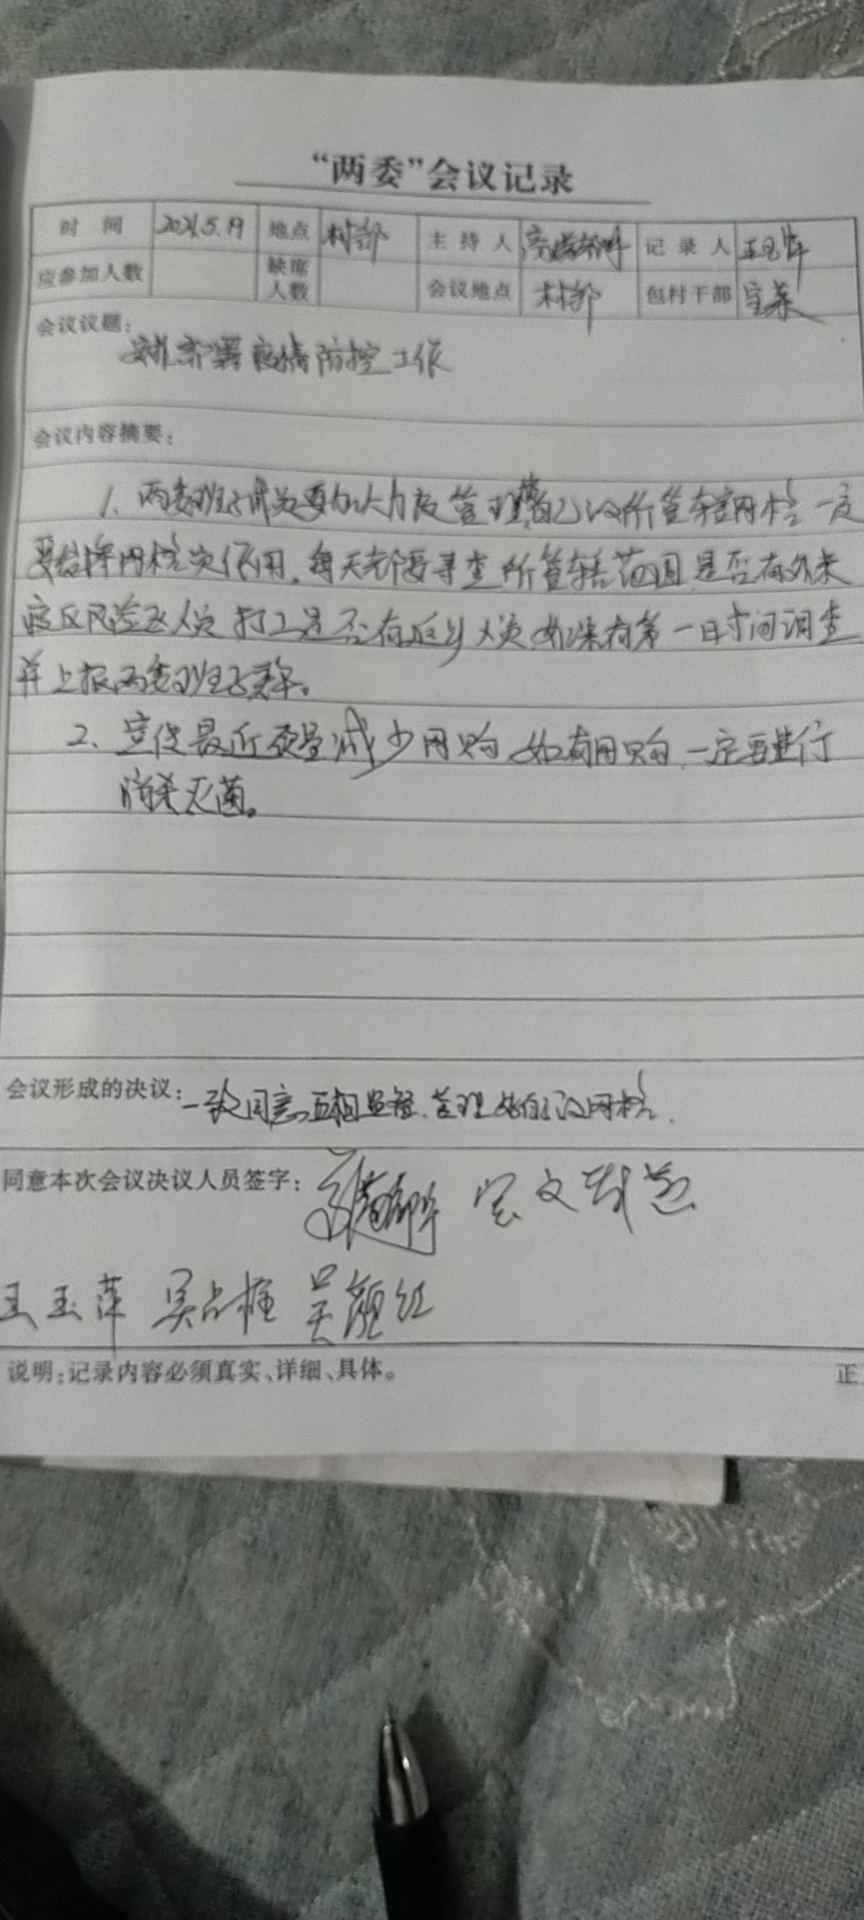 “两委”会议记录
时 间 2021.5.19 地点 村部 主 持 人 记 录 人 王玉萍
应参加人数 缺席人数 会议地点 村部 包村干部
会议议题:
安排部署疫情防控工作
会议内容摘要:
1、两委班子成员要加大力度管理自己的所管辖网格 一定
要发挥网格员作用,每天都要寻查所管辖范围是否有外来
疫区风险区人员 打工是否有返乡人员 如果有第一时间调查
并上报两委班子
2、宣传最近尽量减少网购 如有网购 一定要进行
消杀灭菌。
会议形成的决议: 一致同意 互相监督.管理好自己的网格.
同意本次会议决议人员签字:
王玉萍 吴占权 吴颜红
说明:记录内容必须真实、详细、具体。
正